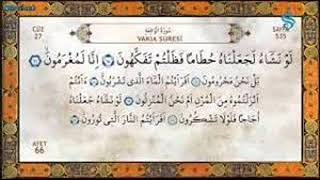 CÜZ
27
سُورَةُ الْوَاقِعَةِ
VAKIA SURESİ
SAYFA
535
لَوْ نَشَاءُ لَجَعَلْنَاهُ حُطَامًا فَظَلْتُمْ تَفَكَّهُونَ ۝ إِنَّا لَمُغْرَمُونَ ۝
بَلْ نَحْنُ مَحْرُومُونَ ۝ أَفَرَأَيْتُمُ الْمَاءَ الَّذِي تَشْرَبُونَ ۝ ءَأَنْتُمْ
أَنْزَلْتُمُوهُ مِنَ الْمُزْنِ أَمْ نَحْنُ الْمُنْزِلُونَ ۝ لَوْ نَشَاءُ جَعَلْنَاهُ
أُجَاجًا فَلَوْلَا تَشْكُرُونَ ۝ أَفَرَأَيْتُمُ النَّارَ الَّتِي تُورُونَ ۝
AYET
66